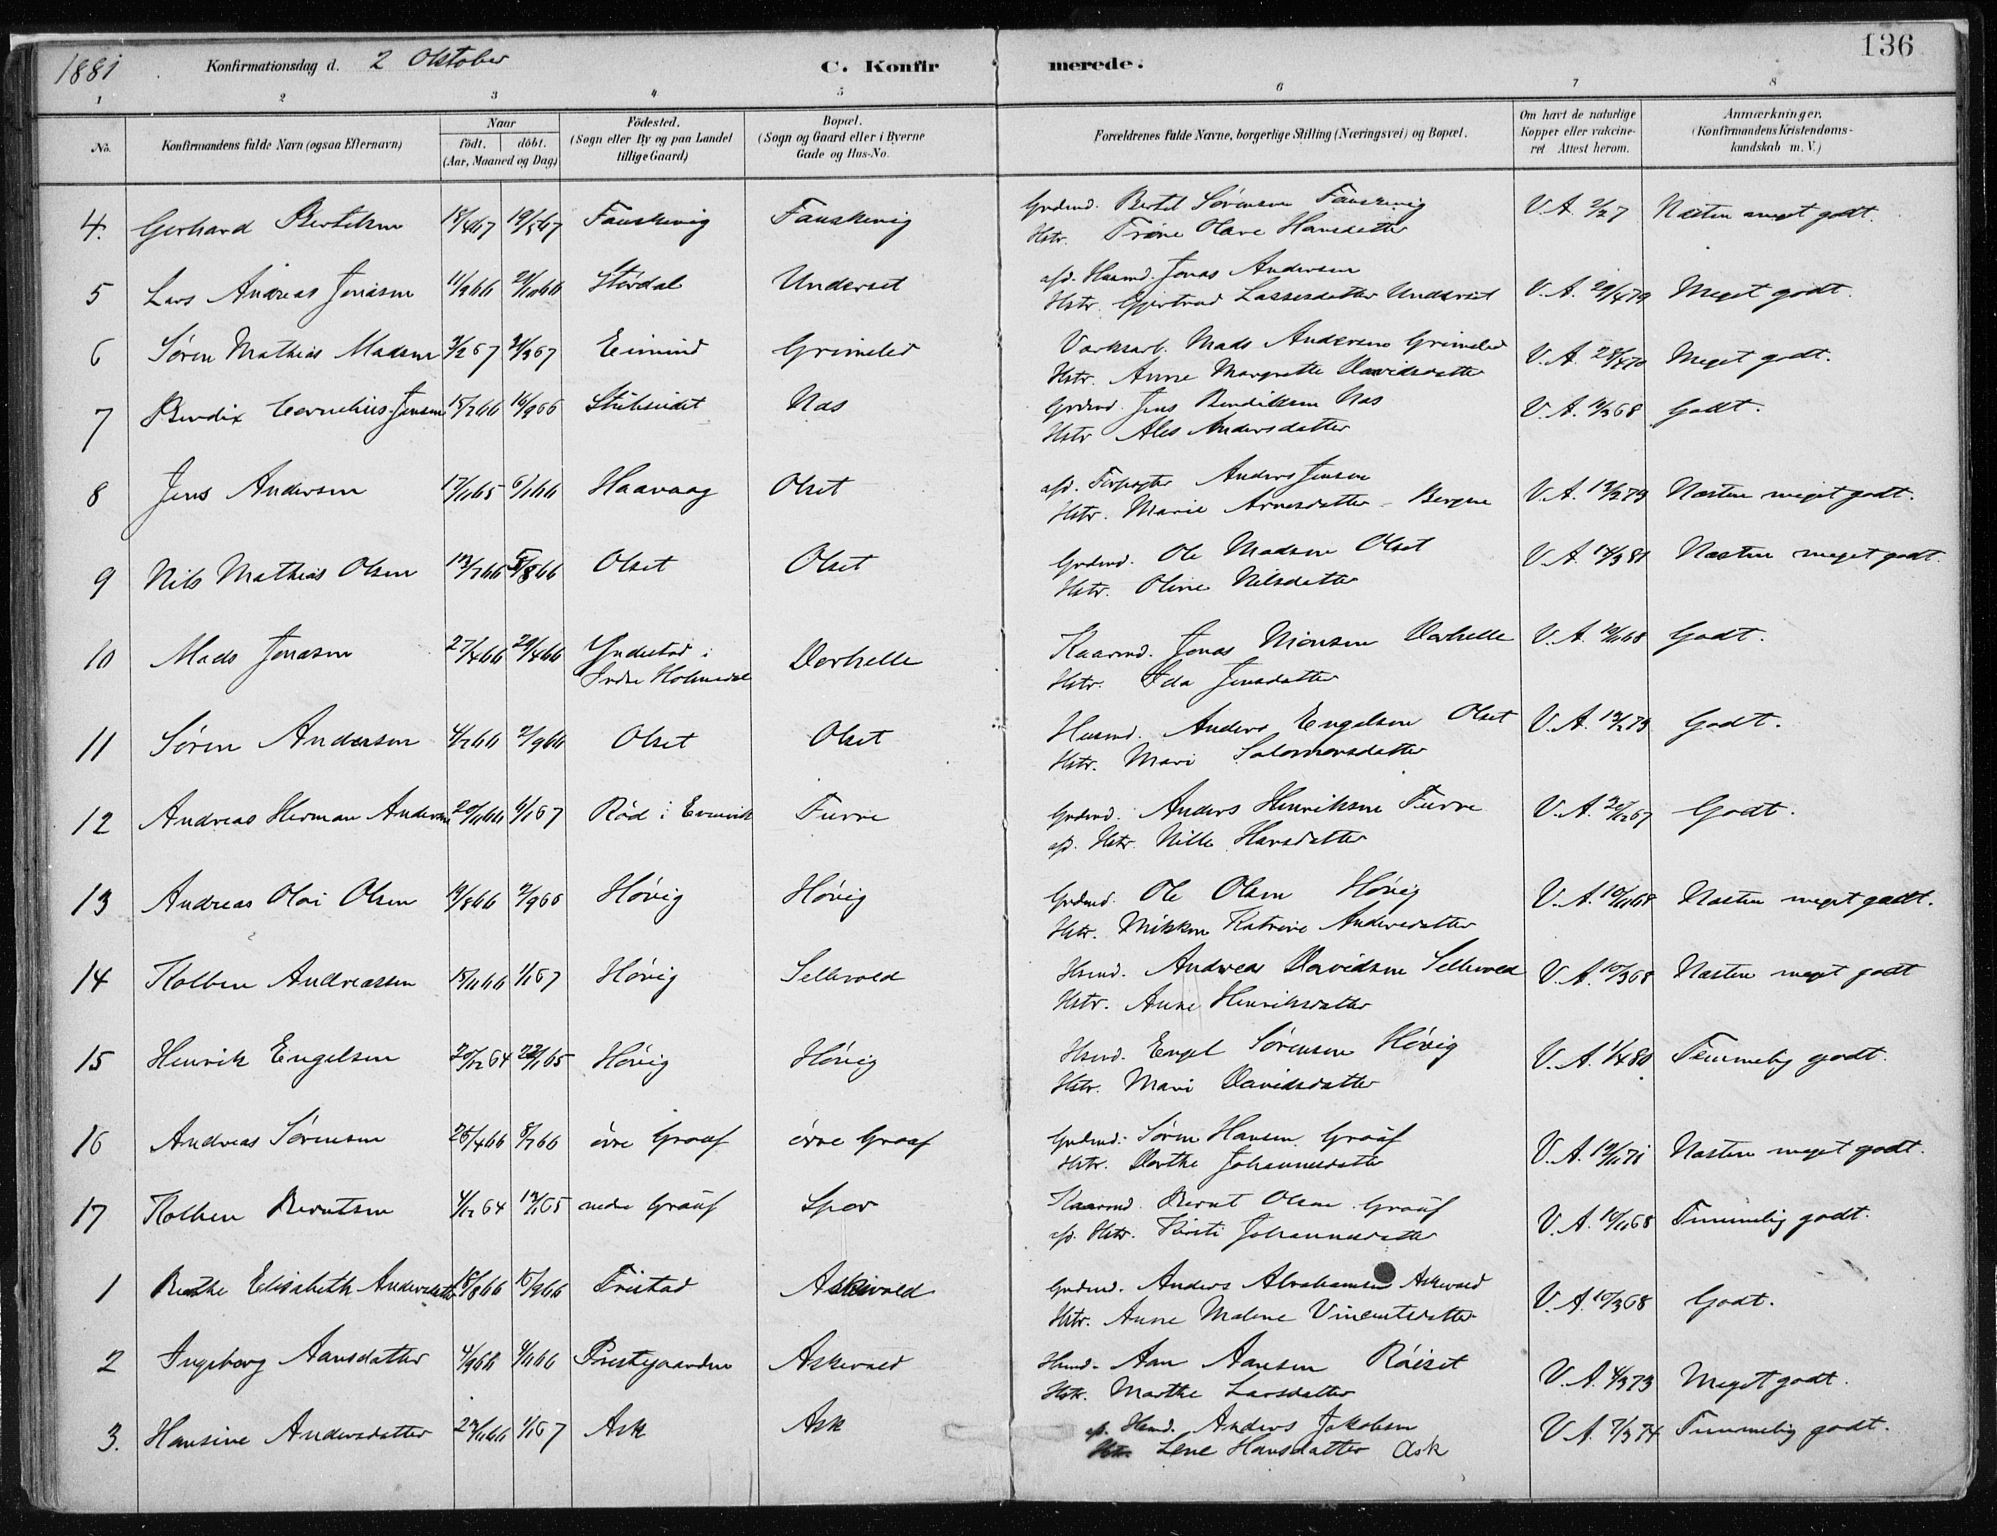 136
1881 Konfirmationsdag d. 2 Oktober C. Konfirmerede.
1 2 3 4 5 6 7 8
No. Konfirmandens fulde Navn (ogsaa Efternavn) Naar født. døbt. (Aar, Maaned og Dag) Fødested. (Sogn eller By og paa Landet tillige Gaard) Bopæl. (Sogn og Gaard eller i Byerne Gade og Hus-No. Forældrenes fulde Navne, borgerlige Stilling (Næringsvei) og Bopæl. Om havt de naturlige Kopper eller vakcineret Attest herom. Anmærkninger. (Konfirmandens Kristendomskundskab m. V.)
4. Gerhard Bertelsen 18/4 67 19/5 67 Fauskevig Fauskevig Grdmd. Bertel Sørensen Fauskevig V.A. Næsten meget godt.
Hstr. Trine Olave Hansdatter
5 Lars Andreas Jonasen 11/9 66 21/10 66 Stordal Underset afd. Huusmd. Jonas Andersen V.A. 29/4 79 Meget godt.
Hstr. Gjertrud Lassesdatter Underset
6 Søren Mathias Madsen 2/2 67 31/3 67 Eimind Grimeled Mads Andersen Grimeled V.A. Meget godt.
Hstr. Anne Margrethe Davidsdatter
7 Bendix Cornelius Jensen 15/7 66 16/9 66 Nas Grdmd. Jens Bendiksen Nas V.A. Godt.
Hstr Ales Andersdatter
8 Jens Andersen 17/11 65 6/1 66 Haavaag Olset afd. Forpagter Anders Jensen V.A. Næsten meget godt.
Hstr. Marie Arnesdatter - Bergen
9 Nils Mathias Olsen 13/7 66 5/8 66 Olset Olset Grdmd. Ole Madsen Olset V.A. 14/3 81 Næsten meget godt.
Hstr. Oline Nilsdatter
10 Mads Jonasen 27/4 66 29/4 66 Yndestad i Dørhelle Kaarmd. Jonas Monsen Dørhelle V.A. 10/11 68 Godt.
Indre Holmedal Hstr. Ida Jensdatter
11 Søren Andersen 4/7 66 2/9 66 Olset Olset Husmd. Anders Engelsen Olset V.A. Godt.
Hstr. Mari Salomonsdatter
12 Andreas Herman Andersen 20/11 66 1/1 67 Rød i Evenvik Furre Grdmd. Anders Henriksen Furre V.A. Godt.
afd. Hstr. Nille Hansdatter
13 Andreas Olai Olsen 19/8 66 2/9 66 Høvig Høvig Grdmd. Ole Olsen Høvig V.A. 10/11 68 Næsten meget godt.
Hstr. Mikken Katrine Andersdatter
14 Kolben Andreassen 15/11 66 1/1 67 Høvig Sellevold Hsmd. Andreas Davidsen Sellevold V.A. 10/3 68 Næsten meget godt
Hstr. Anne Henriksdatter
15 Henrik Engelsen 20/12 64 22/1 65 Høvig Høvig Hsmd. Engel Sørensen Høvig V.A. 1/4 80 Temmelig godt.
Hstr. Mari Davidsdatter
16 Andreas Sørensen 25/4 66 8/7 66 øvre Graaf øvre Graaf Grdmd. Søren Hansen Graaf V.A. Næsten meget godt.
Hstr. Dorthe Johannesdatter
17 Kolben Berntsen 4/12 64 13/1 65 nedre Graaf Spor Kaarmd. Bernt Olsen Graaf V.A. 10/11 68 Temmelig godt.
afd. Hstr. Kirsti Johannesdatter
1 Berthe Elisabeth Andersdatter 18/8 66 Tvistad Askevold Grdmd. Anders Abrahamsen Askevold V.A. 10/3 68 Godt.
Hstr. Anne Malene Vincentsdatter
2 Ingeborg Aansdatter 4/9 66 4/11 66 Prestegaarden Askevold Husmd. Aan Aansen Røiset V.A. 4/3 73 Meget godt.
Hstr. Marthe Larsdatter
3. Hansine Andersdatter 23/11 66 1/1 67 Ask Ask afd. Husmd. Anders Jakobsen V.A. 7/3 74 Temmelig godt.
Hstr. Lene Hansdatter Ask